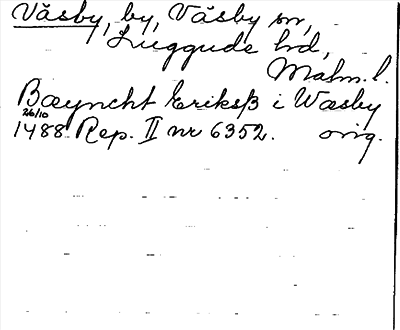 Väsby, by, Väsby sn,
Luggude hd,
Malm. l.
Bæyncht Erikss̄ i Wæsby
26/10
1488 Rep. II nr 6352. orig.